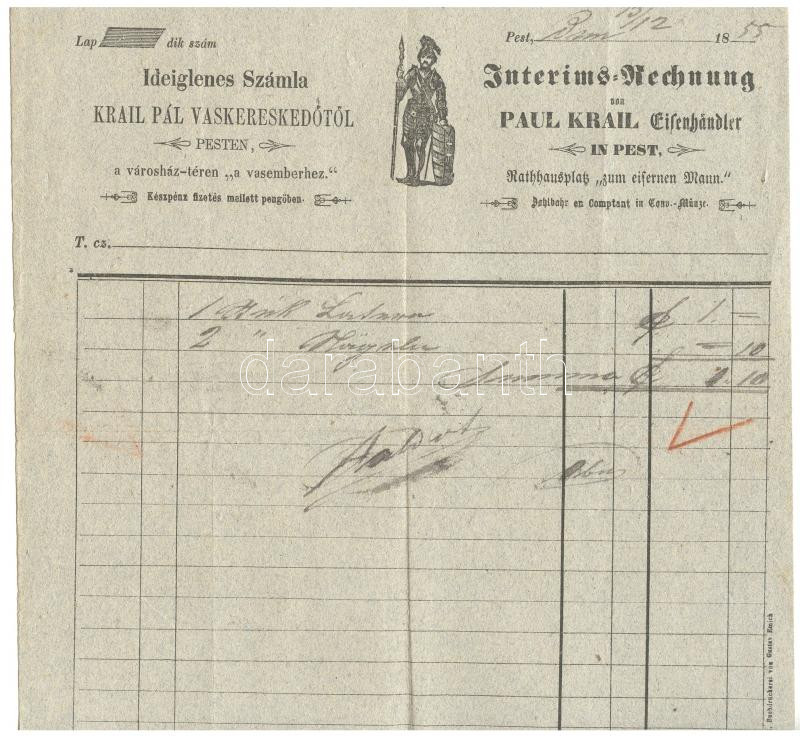 Lap dik szám
Ideiglenes Számla
KRAIL PÁL VASKERESKEDŐTŐL
PESTEN,
a városház-téren „a vasemberhez.“
Készpénz fizetés mellett pengőben.
Pest, 13/12 1855
Interims-Rechnung
von
PAUL KRAIL Eisenhändler
IN PEST,
Rathhausplatz „zum eisernen Mann.“
Zahlbahr en Comptant in Conv.-Münze.
T. cz.
1 Stük f 1. –
2 " – 10
Summa f 1. 10
darabanth
Buchdruckerei von Gustav Emich